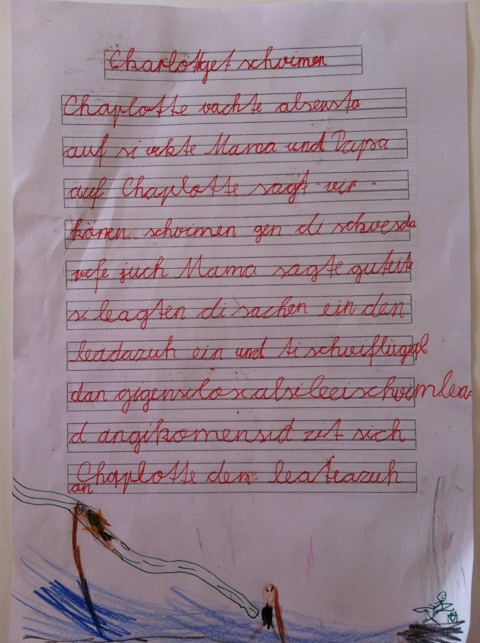 Charlottget schwimen
Chaplotte vachte alsensta
auf si vekte Mama und Papa
auf Chaplotte sagt vir
könen schwimen gen di schwesda
vefe juch Mama sagte guteite
si leagten di sachen ein den
leadazuh ein und ti schwiflügal
dan gigenselos alsileeischwimlea
d angikomensid zet sich
Chaplotte den leateazuh
an